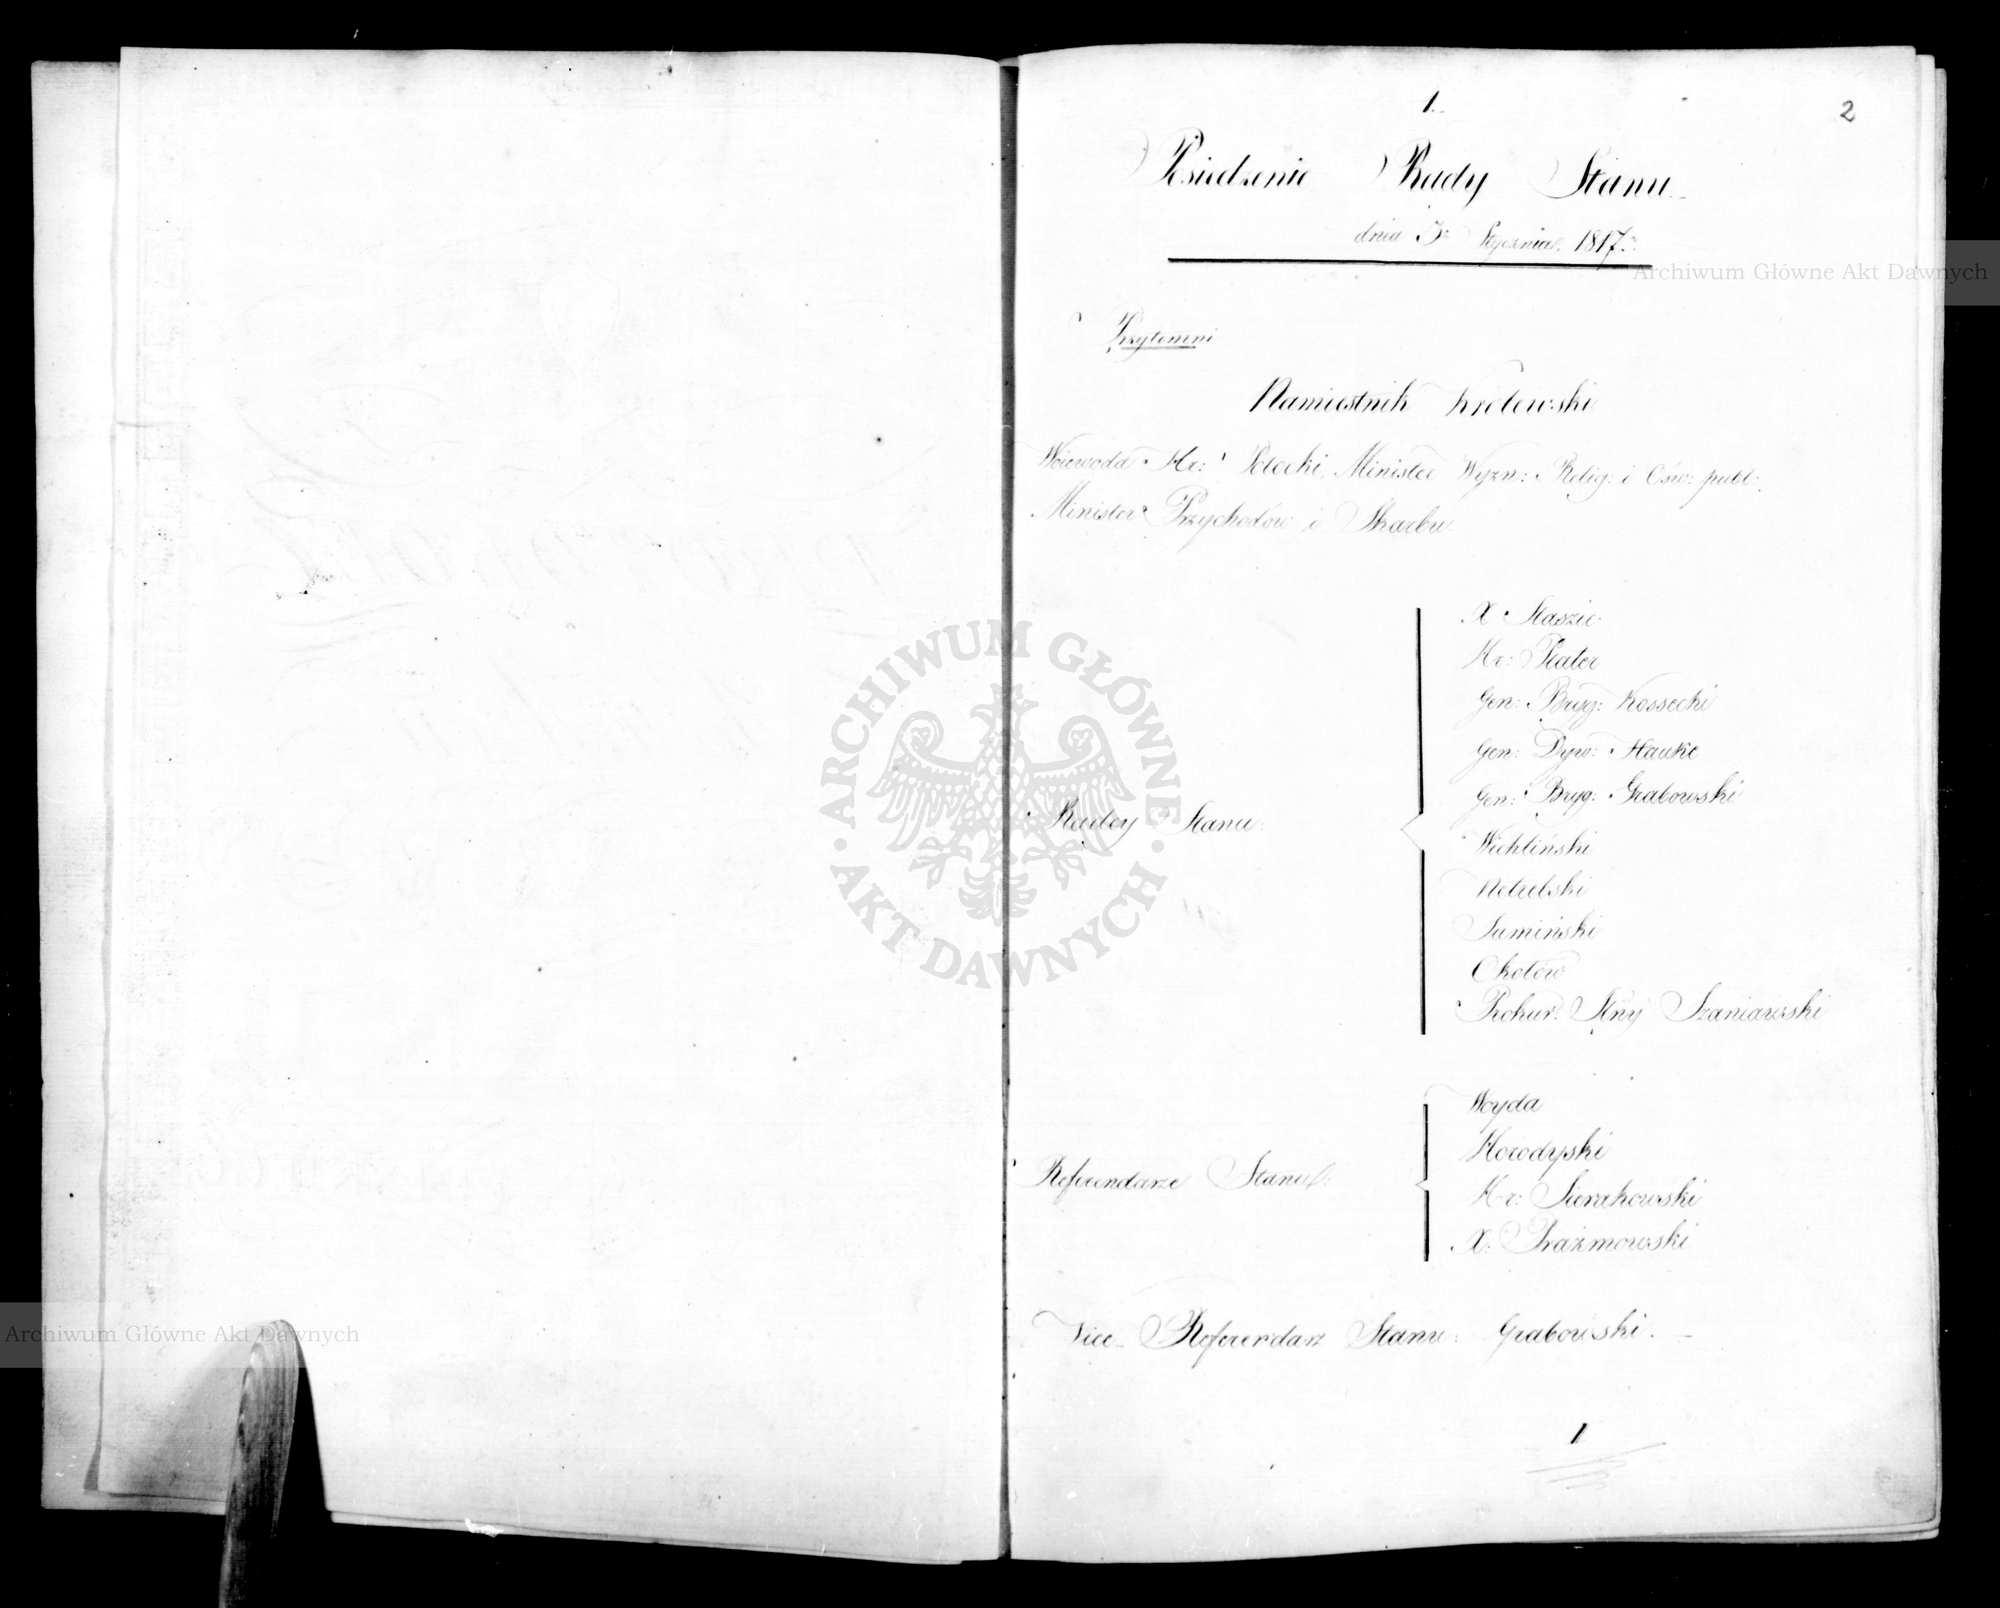 1.
2
Posiedzenie Rady Stanu
dnia 3º Stycznia 1817.
Przytomni
Namiestnik Królewski
Woiewoda Hr: Potocki, Minister Wyzn: Relig: i Ośw: publ:
Minister Przychodów i Skarbu.
X Staszic
Hr: Plater
Gen: Bryg: Kossecki
Gen: Dyw: Hauke
Gen: Bryg: Grabowski
Radcy Stanu:
Wichliński
Nakielski
Sumiński
Okołów
Prokur. Kny Szaniawski
Woyda
Horodyski
Referendarze Stanu:
Hr: Sierakowski
X: Prażmowski
Vice-Referendarz Stanu: Grabowski.
1
Archiwum Główne Akt Dawnych
ARCHIWUM GŁÓWNE · AKT DAWNYCH ·
Archiwum Główne Akt Dawnych